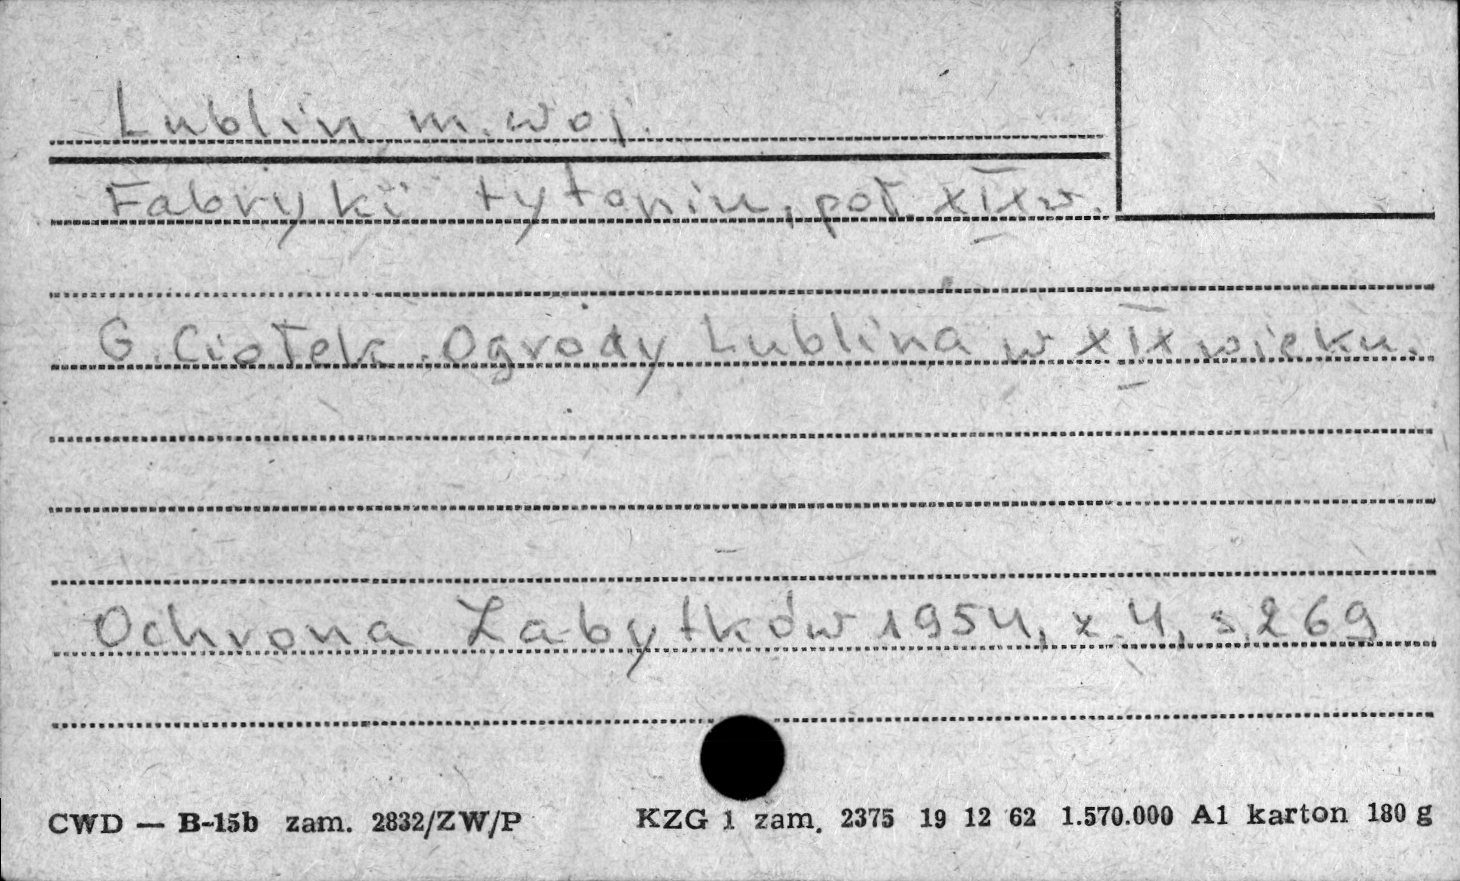 Lublin m. woj.
Fabryki tytoniu, poł. XIX w.
G. Ciołek. Ogrody Lublina w XIX wieku.
Ochrona Zabytków 1954, z. 4, s. 269
CWD — B-15b zam. 2832/ZW/P KZG 1 zam. 2375 19 12 62 1.570.000 A1 karton 180 g